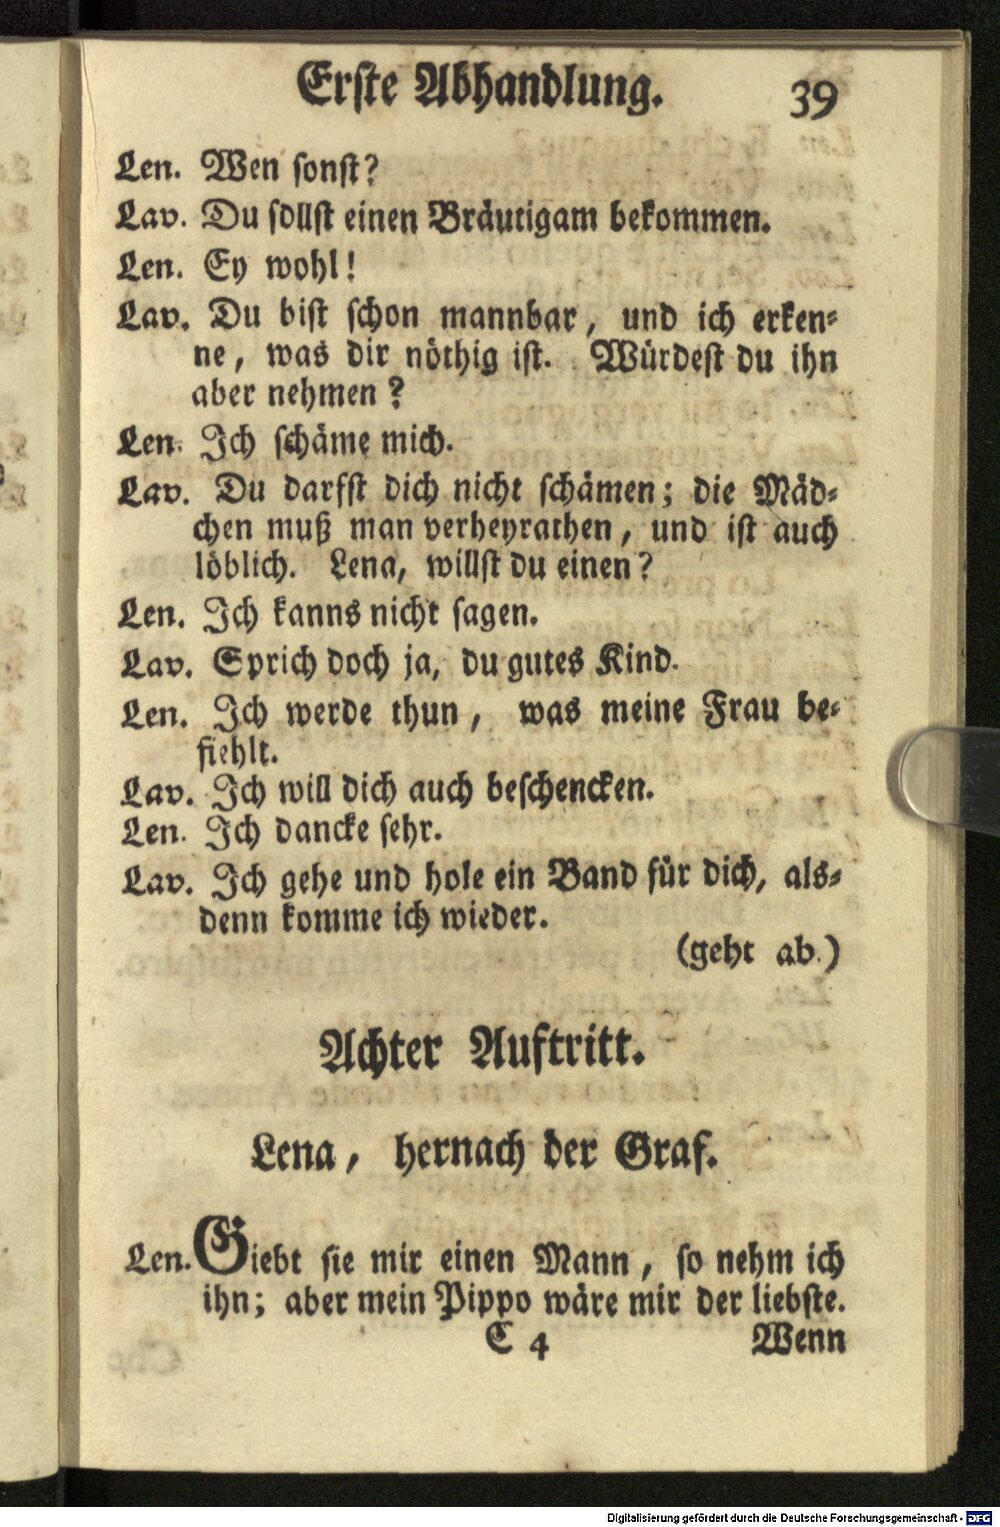 Erste Abhandlung. 39
Len. Wen sonst?
Lav. Du sollst einen Bräutigam bekommen.
Len. Ey wohl!
Lav. Du bist schon mannbar, und ich erken-
ne, was dir nöthig ist. Würdest du ihn
aber nehmen?
Len. Ich schäme mich.
Lav. Du darfst dich nicht schämen; die Mäd-
chen muß man verheyrathen, und ist auch
löblich. Lena, willst du einen?
Len. Ich kanns nicht sagen.
Lav. Sprich doch ja, du gutes Kind.
Len. Ich werde thun, was meine Frau be-
fiehlt.
Lav. Ich will dich auch beschencken.
Len. Ich dancke sehr.
Lav. Ich gehe und hole ein Band für dich, als-
denn komme ich wieder.
(geht ab.)
Achter Auftritt.
Lena, hernach der Graf.
Len. Giebt sie mir einen Mann, so nehm ich
ihn; aber mein Pippo wäre mir der liebste.
C 4 Wenn
Digitalisierung gefördert durch die Deutsche Forschungsgemeinschaft - DFG